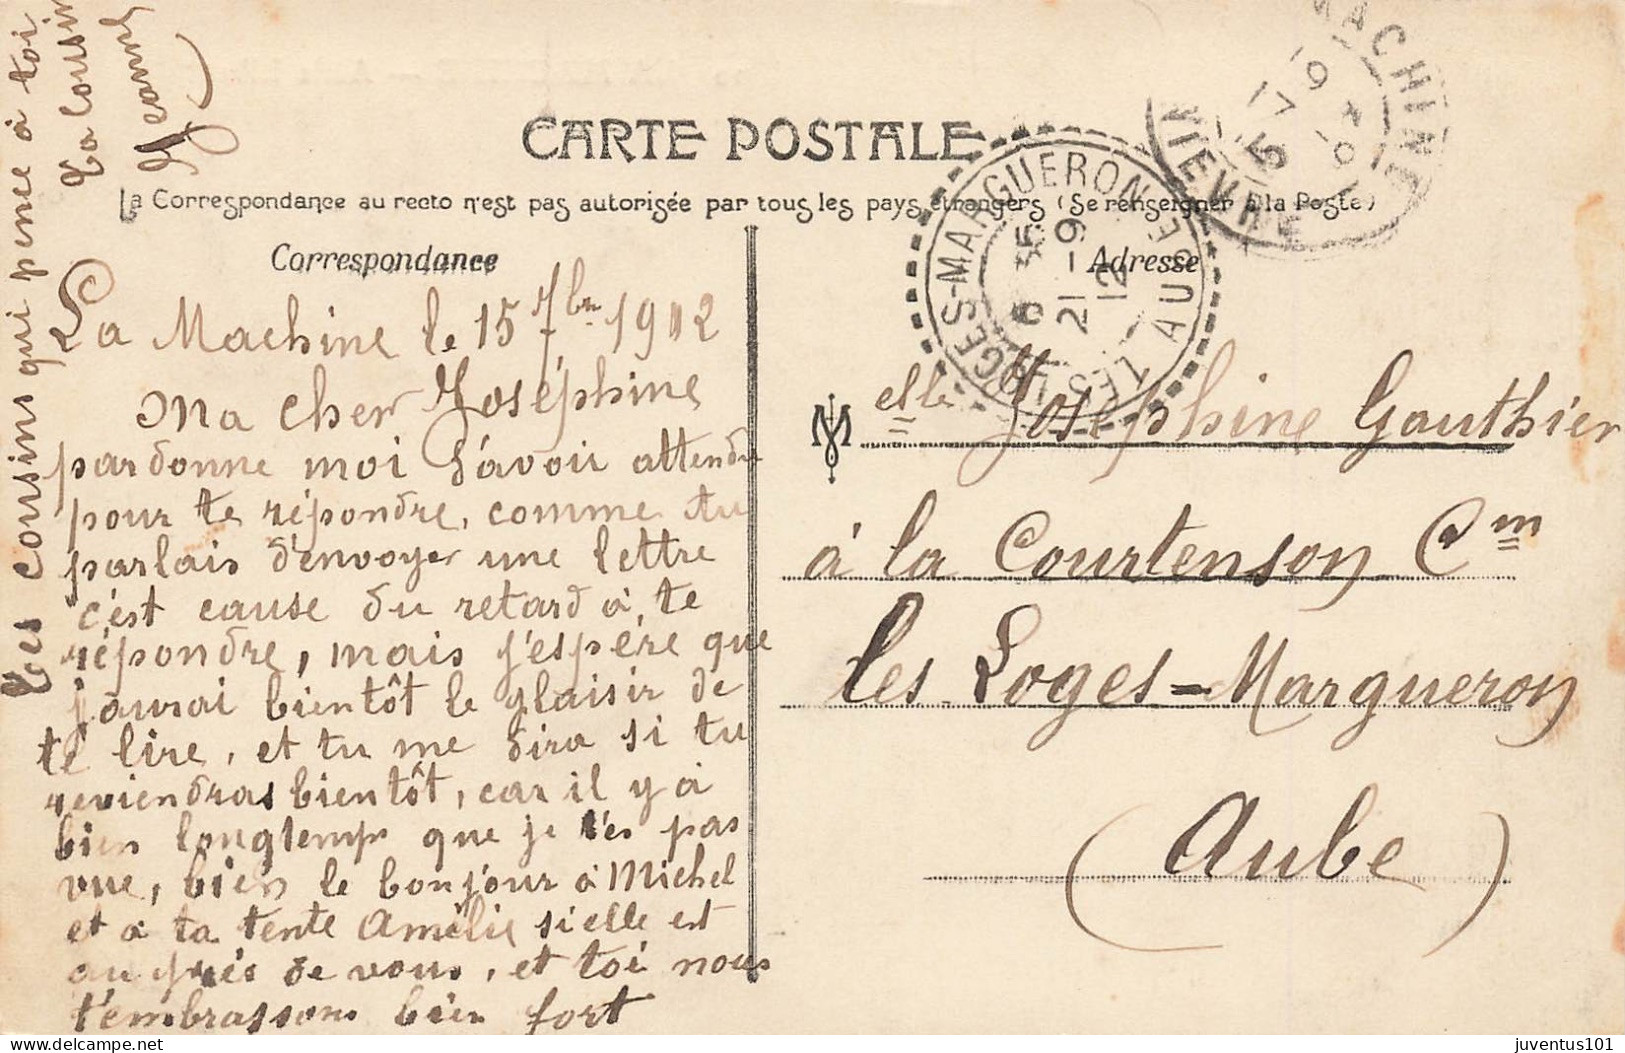 CARTE POSTALE
La Correspondance au recto n'est pas autorisée par tous les pays étrangers (Se renseigner à la Poste)
Correspondance
La Machine le 15 7bre 1912
Ma cher Joséphine
pardonne moi d'avoir attendu
pour te répondre, comme tu
parlais d'envoyer une lettre
c'est cause du retard à te
répondre, mais j'espère que
j'aurai bientôt le plaisir de
te lire, et tu me dira si tu
reviendras bientôt, car il y à
bien longtemps que je t'es pas
vue, bien le bonjour à Michel
et à ta tente Amélie si elle est
au près de vous, et toi nous
t'embrassons bien fort
Tes cousins qui pence à toi
Ta cousine
Jeanne
Adresse
Melle Joséphine Gauthier
à la Courtenson Cm
les Loges-Margueron
(Aube)
LES LOGES-MARGUERON
AUBE
6 35
21-9
12
MACHINE
NIEVRE
juventus101